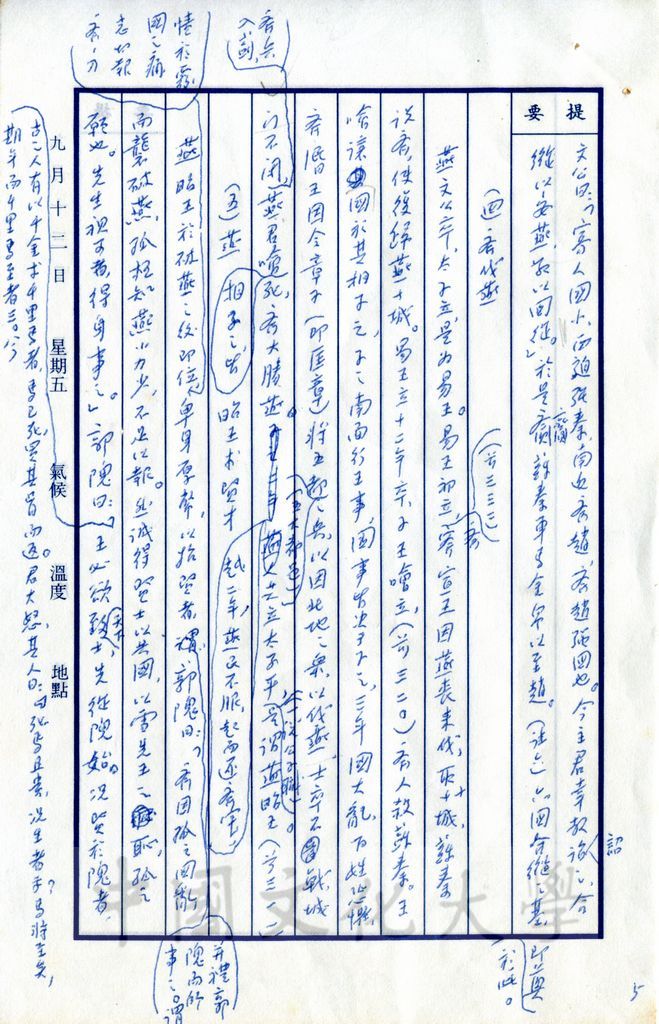 提要
文公曰:「寡人國小,西迫強秦,南近齊趙,齊趙強國也。今主君幸教詔之,合
從以安燕,敬以國從。」於是齎蘇秦車馬金帛以至趙。(註六)六國合縱之基
即奠
於此。
(四)齊伐燕
燕文公卒,太子立,是為易王。易王初立,齊宣王因燕喪來伐,取十城,蘇秦
(前三三二)
說齊,使復歸燕十城。易王立十二年卒,子王噲立,(前三二〇)齊人殺蘇秦。王
噲讓國於其相子之,子之南面行王事,國事皆決子之,三年國大亂,百姓恐懼,
齊湣王因令章子(即匡章)將五都之兵,以因北地之眾,以伐燕,士卒不戰,城
(五大都邑)
門不閉,燕君噲死,齊大勝燕。
齊兵
入薊,
共立太子平
是謂燕昭王(前三一一)
越二年,燕又不服,起而逐齊軍,
(五)燕昭王求賢才
相子之
燕昭王於破燕之後即位,卑身厚幣,以招賢者,謂郭隗曰:「齊因孤之國亂
而襲破燕,孤極知燕小力少,不足以報。然誠得賢士以共國,以雪先王之恥,孤之
願也。先生視可者,得身事之。」郭隗曰:「王必欲致士,先從隗始。況賢於隗者,
天下
古之人有以千金求千里馬者,馬已死,買其骨而返。君大怒,其人曰:死馬且貴,況生者乎?馬將至矣,
期年而千里馬至者三。今
九月十二日 星期五 氣候 溫度 地點
5
中國文化大學